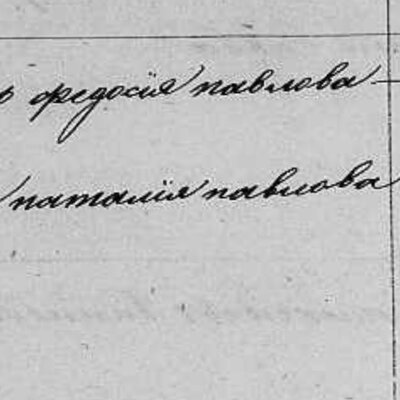 федосія павлова
наталія павлова